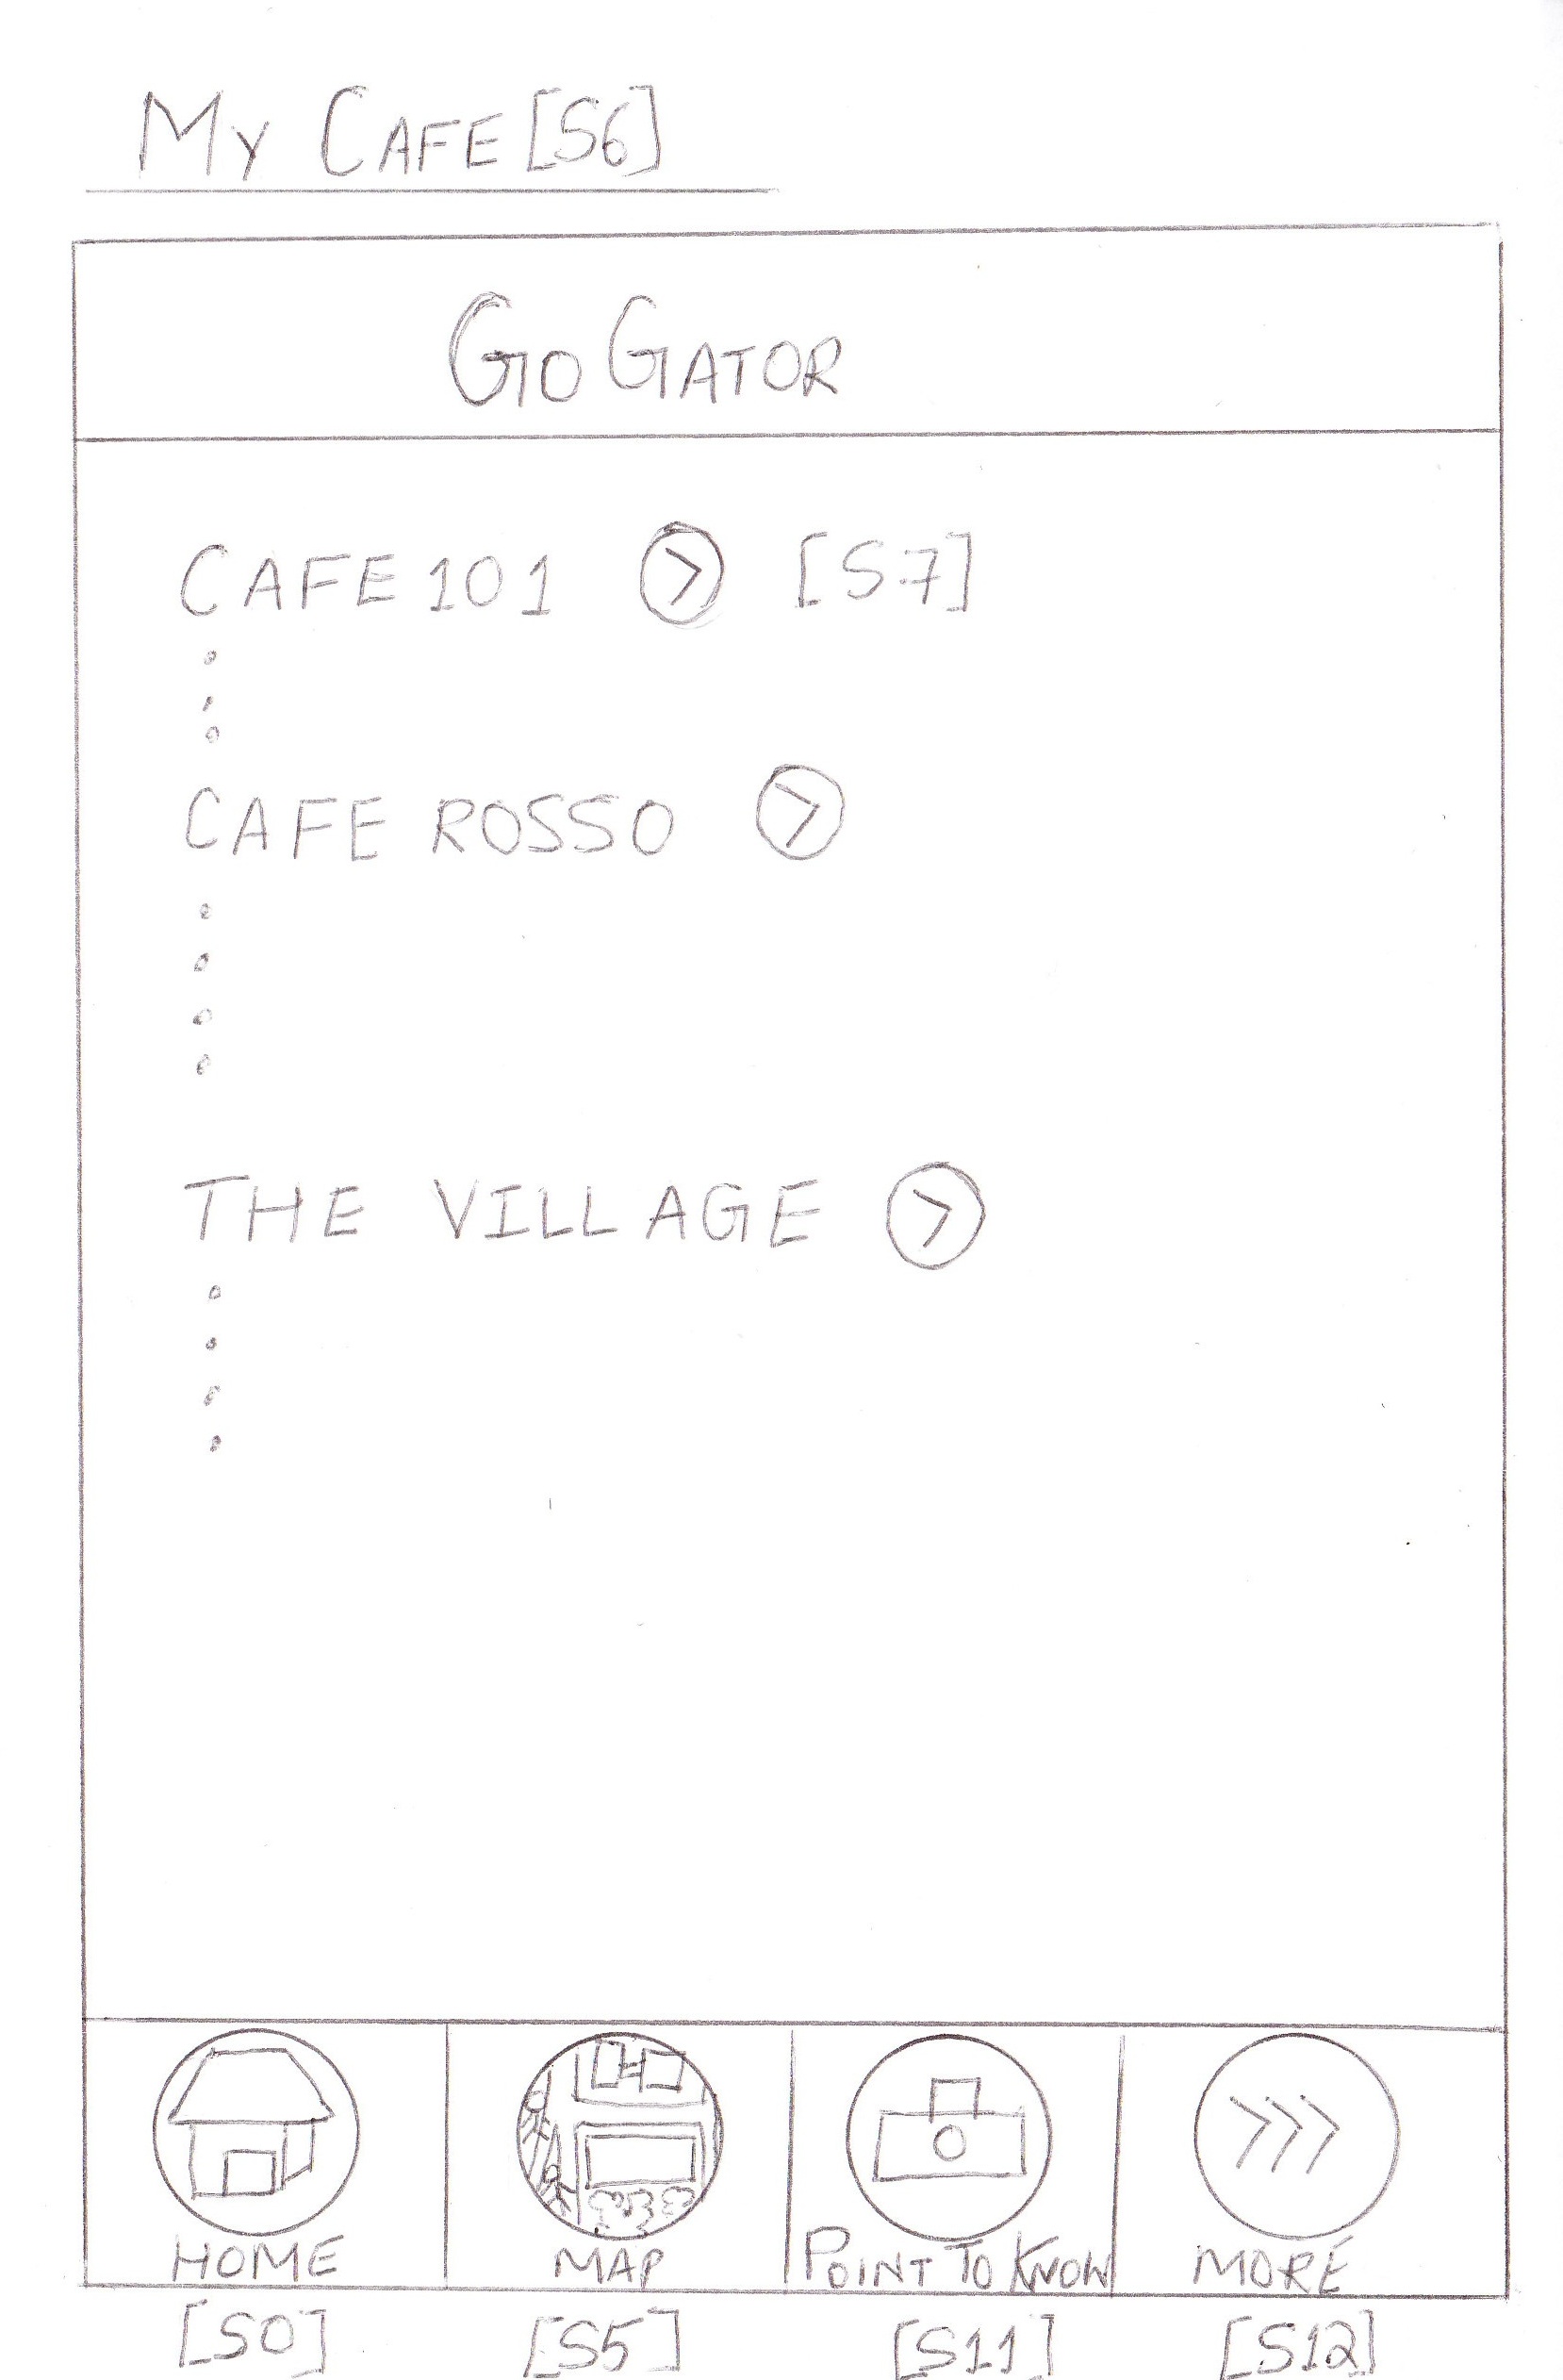 My Cafe [S6]
GoGator
CAFE 101 > [S7]
CAFE ROSSO >
THE VILLAGE >
>>>
HOME MAP POINT TO KNOW MORE
[S0] [S5] [S11] [S12]